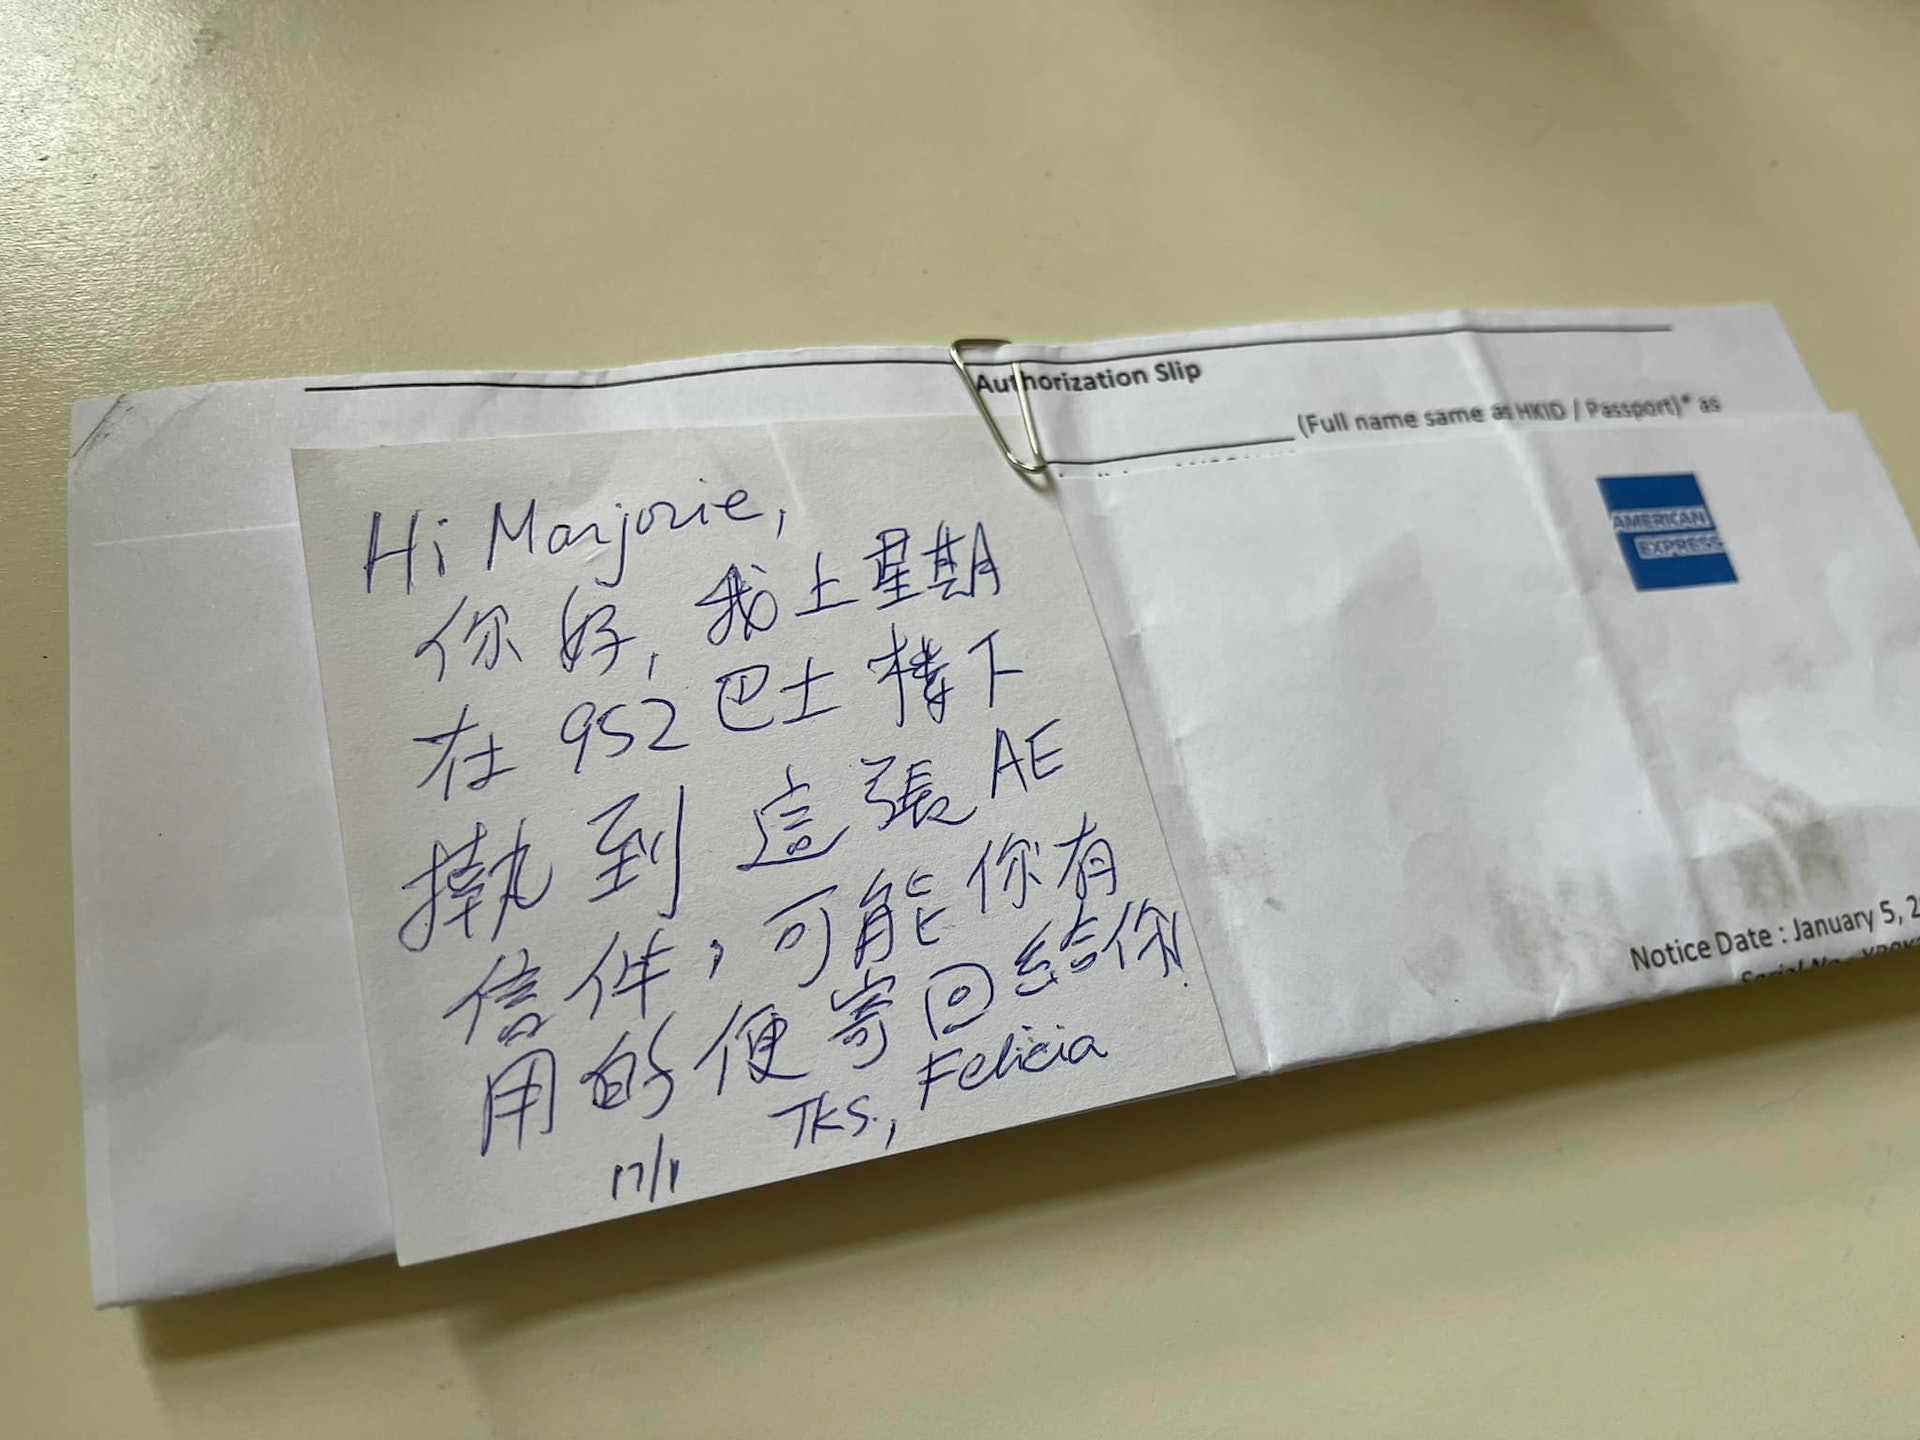 Authorization Slip
(Full name same as HKID / Passport)* as
AMERICAN
EXPRESS
Hi Marjorie,
你好, 我上星期
在 952 巴士樓下
執到這張 AE
信件，可能你有
用的便寄回給你!
Tks., Felicia
17/1
Notice Date : January 5, 2
Serial No